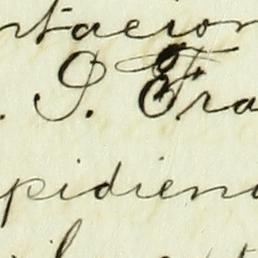 ntacion
. S. Fra
pidiend